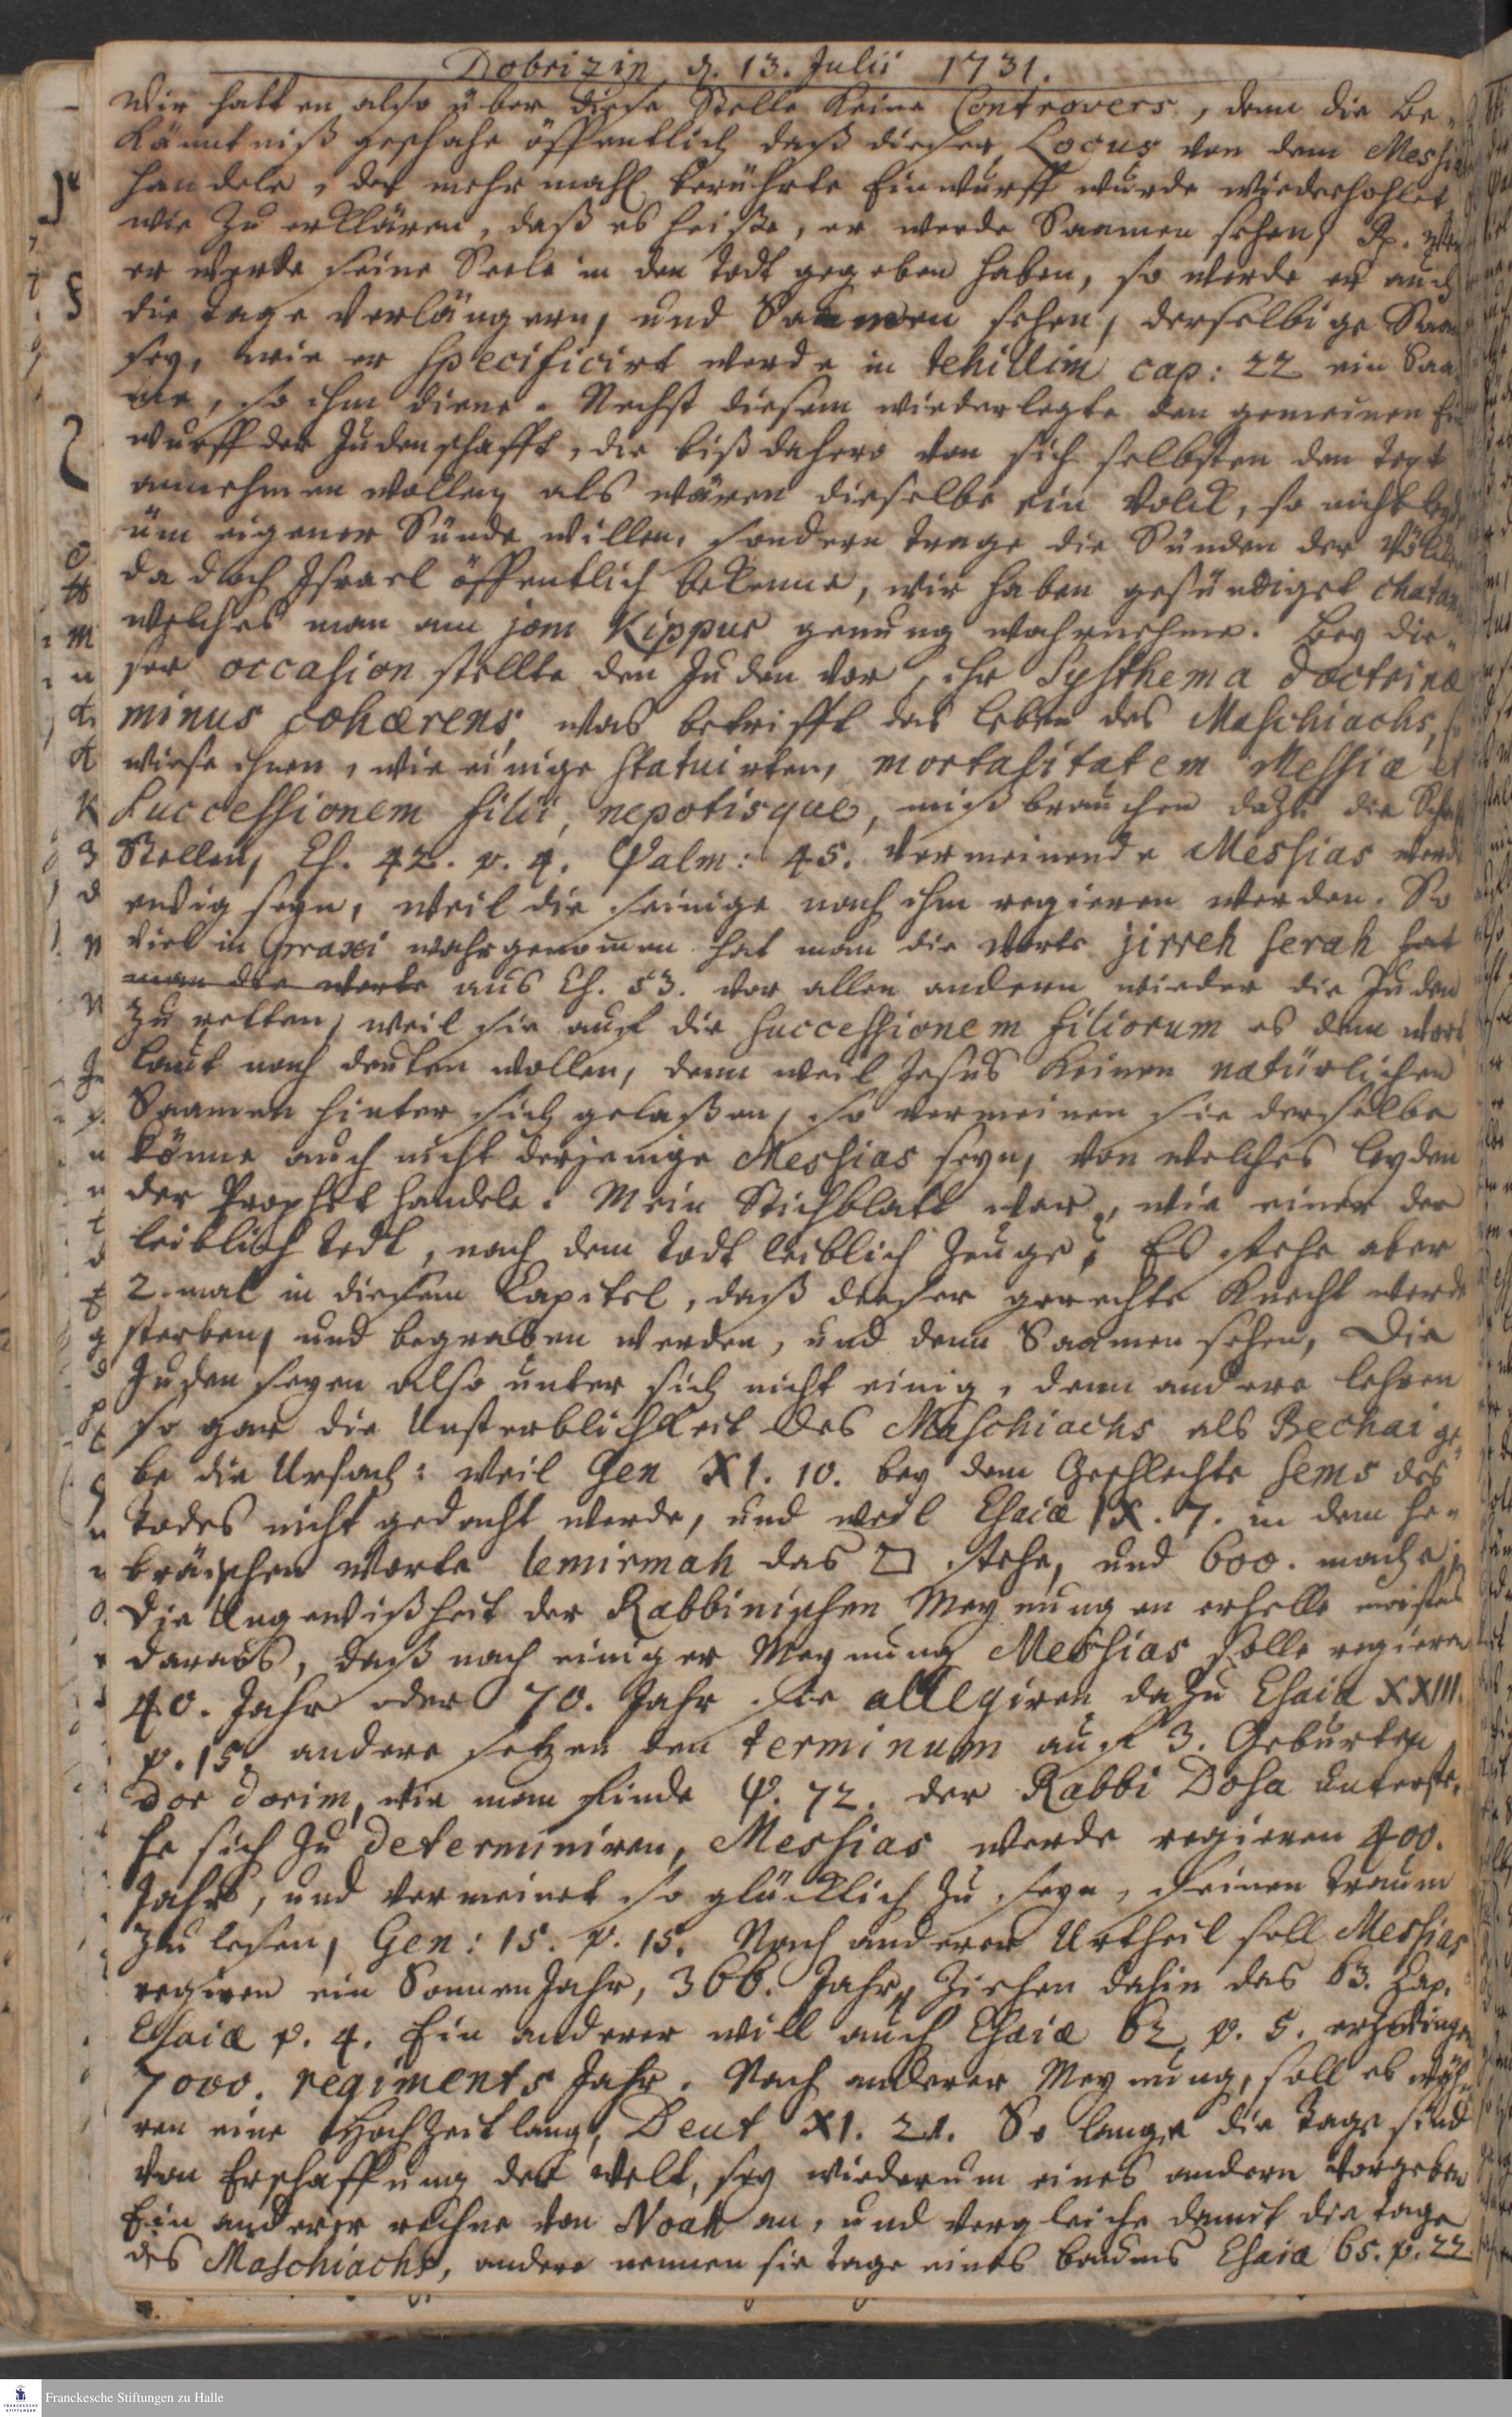 Dobrizin d. 13. Julii 1731.
Wir hatten also über diese Stelle keine Controvers, denn die Be-
käntniß geschahe öffentlich daß dieser Locus von dem Messia
handele, der mehrmahl berührte Einwurff wurde wiederhohlet
wie zu erklären, daß es heiße, er werde Saamen sehen, Rp.
er werde seine Seele in den Todt gegeben haben, so werde er auch
die Tage verlängern, und Saamen sehen, derselbige Saam
sey, wie er specificirt werde in tehillim cap: 22 ein Saa-
me, so ihm diene. Nechst diesem wiederlegte den gemeinen Ein
wurff der Judenschafft, die bißdahero von sich selbsten den Text
annehmen wollen als wären dieselbe ein Volck, so nicht leyde
üm eigener Sünde willen, sondern trage die Sünden der Völcker
da doch Israel öffentlich bekenne, wir haben gesündiget chatanu
welches man am jom Kippur genung wahrnehme. Bey die-
ser occasion stellte den Juden vor, ihr Systhema doctrinæ
minus cohærens, was betrifft das Leben des Maschiachs, so
wiese ihnen, wie einige statuirten, mortalitatem Messiæ et
Successionem filii, nepotisque, mißbrauchen dazu die Schrifft
Stellen, Es. 42. v. 4. Psalm: 45. vermeinende Messias werde
ewig seyn, weil die seinige nach ihm regieren werden. So
viel in Praxi wahrgenommen hat man die Worte jirreh serah hat
man die worte aus Es. 53. vor allen andern wieder die Juden
zu retten, weil sie auf die successionem filiorum es dem wort
laut nach deuten wollen, denn weil Jesus keinen natürlichen
Saamen hinter sich gelaßen, so vermeinen sie derselbe
könne auch nicht derjenige Messias seyn, von welches Leyden
der Prophet handele. Mein Stichblatt war, wie einer der
leiblich todt, nach dem Todt leiblich zeuge? Es stehe aber
2. mal in diesem Capitel, daß dieser gerechte Knecht werde
sterben, und begraben werden, und denn Saamen sehen, Die
Juden seyen also unter sich nicht einig, denn andere lehren
so gar die Unsterblichkeit des Maschiachs als Bechai ge-
be die Ursach: weil Gen XI. 10. bey dem Geschlechte Sems des
Todes nicht gedacht werde, und weil Esaiæ IX. 7. in dem he-
bräischen Worte lemirmah das ם stehe, und 600. mache;
Die Ungewißheit der Rabbinischen Meynungen erhelle meistes
daraus, daß nach einiger Meynung Messias solle regieren
40. Jahr oder 70. Jahr sie allegiren dazu Esaiæ XXIII.
v. 15. andere setzen den terminum auf 3. Geburten
dor dorim, wie man finde Ψ. 72. der Rabbi Dosa unterste-
he sich zu determiniren, Messias werde regieren 400.
Jahr, und vermeinet so glücklich zu seyn, seinen Traum
zu lesen, Gen: 15. v. 15. Nach anderer Urtheil soll Messias
regiren ein SonnenJahr, 366. Jahr, ziehen dahin das 63. Cap.
Esaiæ v. 4. Ein anderer will auch Esaiæ 62 v. 5. erzwingen
7000. regiments Jahr. Nach anderer Meynung, soll es wäh-
ren eine Hochzeit lang, Deut XI. 21. So lange die Tage sind
von Erschaffung der Welt, sey wiederum eines andern Vorgeben
Ein anderer rechne von Noah an, und vergleiche damit die Tage
des Maschiachs, andere nennen sie Tage eines Baums Esaiæ 65. v. 22.
Franckesche Stiftungen zu Halle